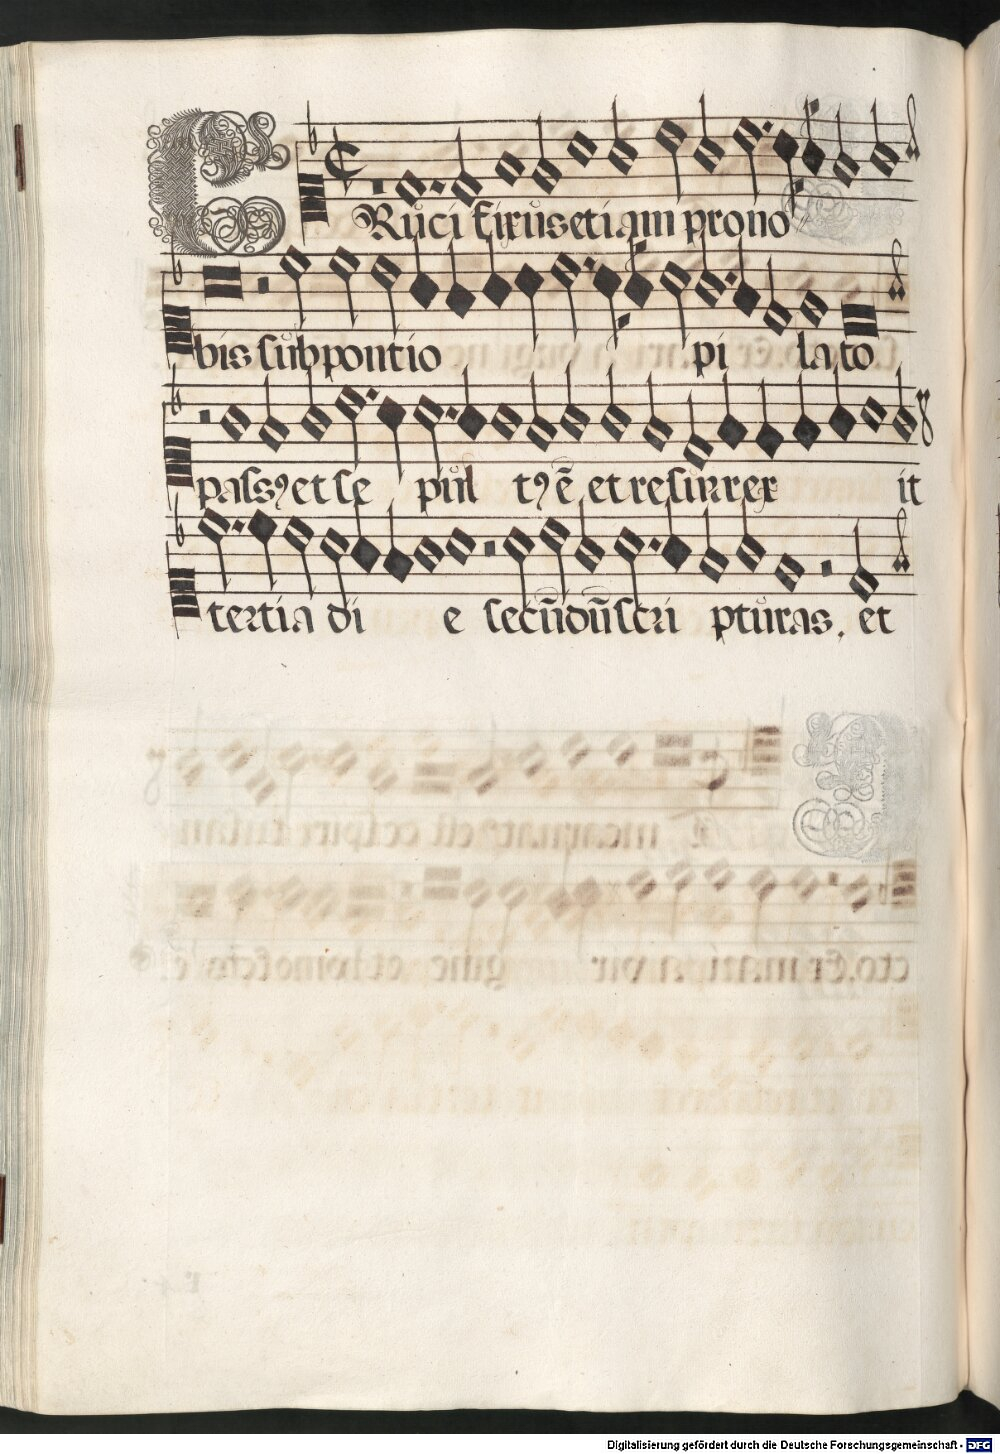 CRuci fixus etiam pro no
bis sub pontio pi lato
passꝰ et se pul tꝰ ē et resurrex it
tertia di e secūdū scri pturas, et
Digitalisierung gefördert durch die Deutsche Forschungsgemeinschaft - DFG